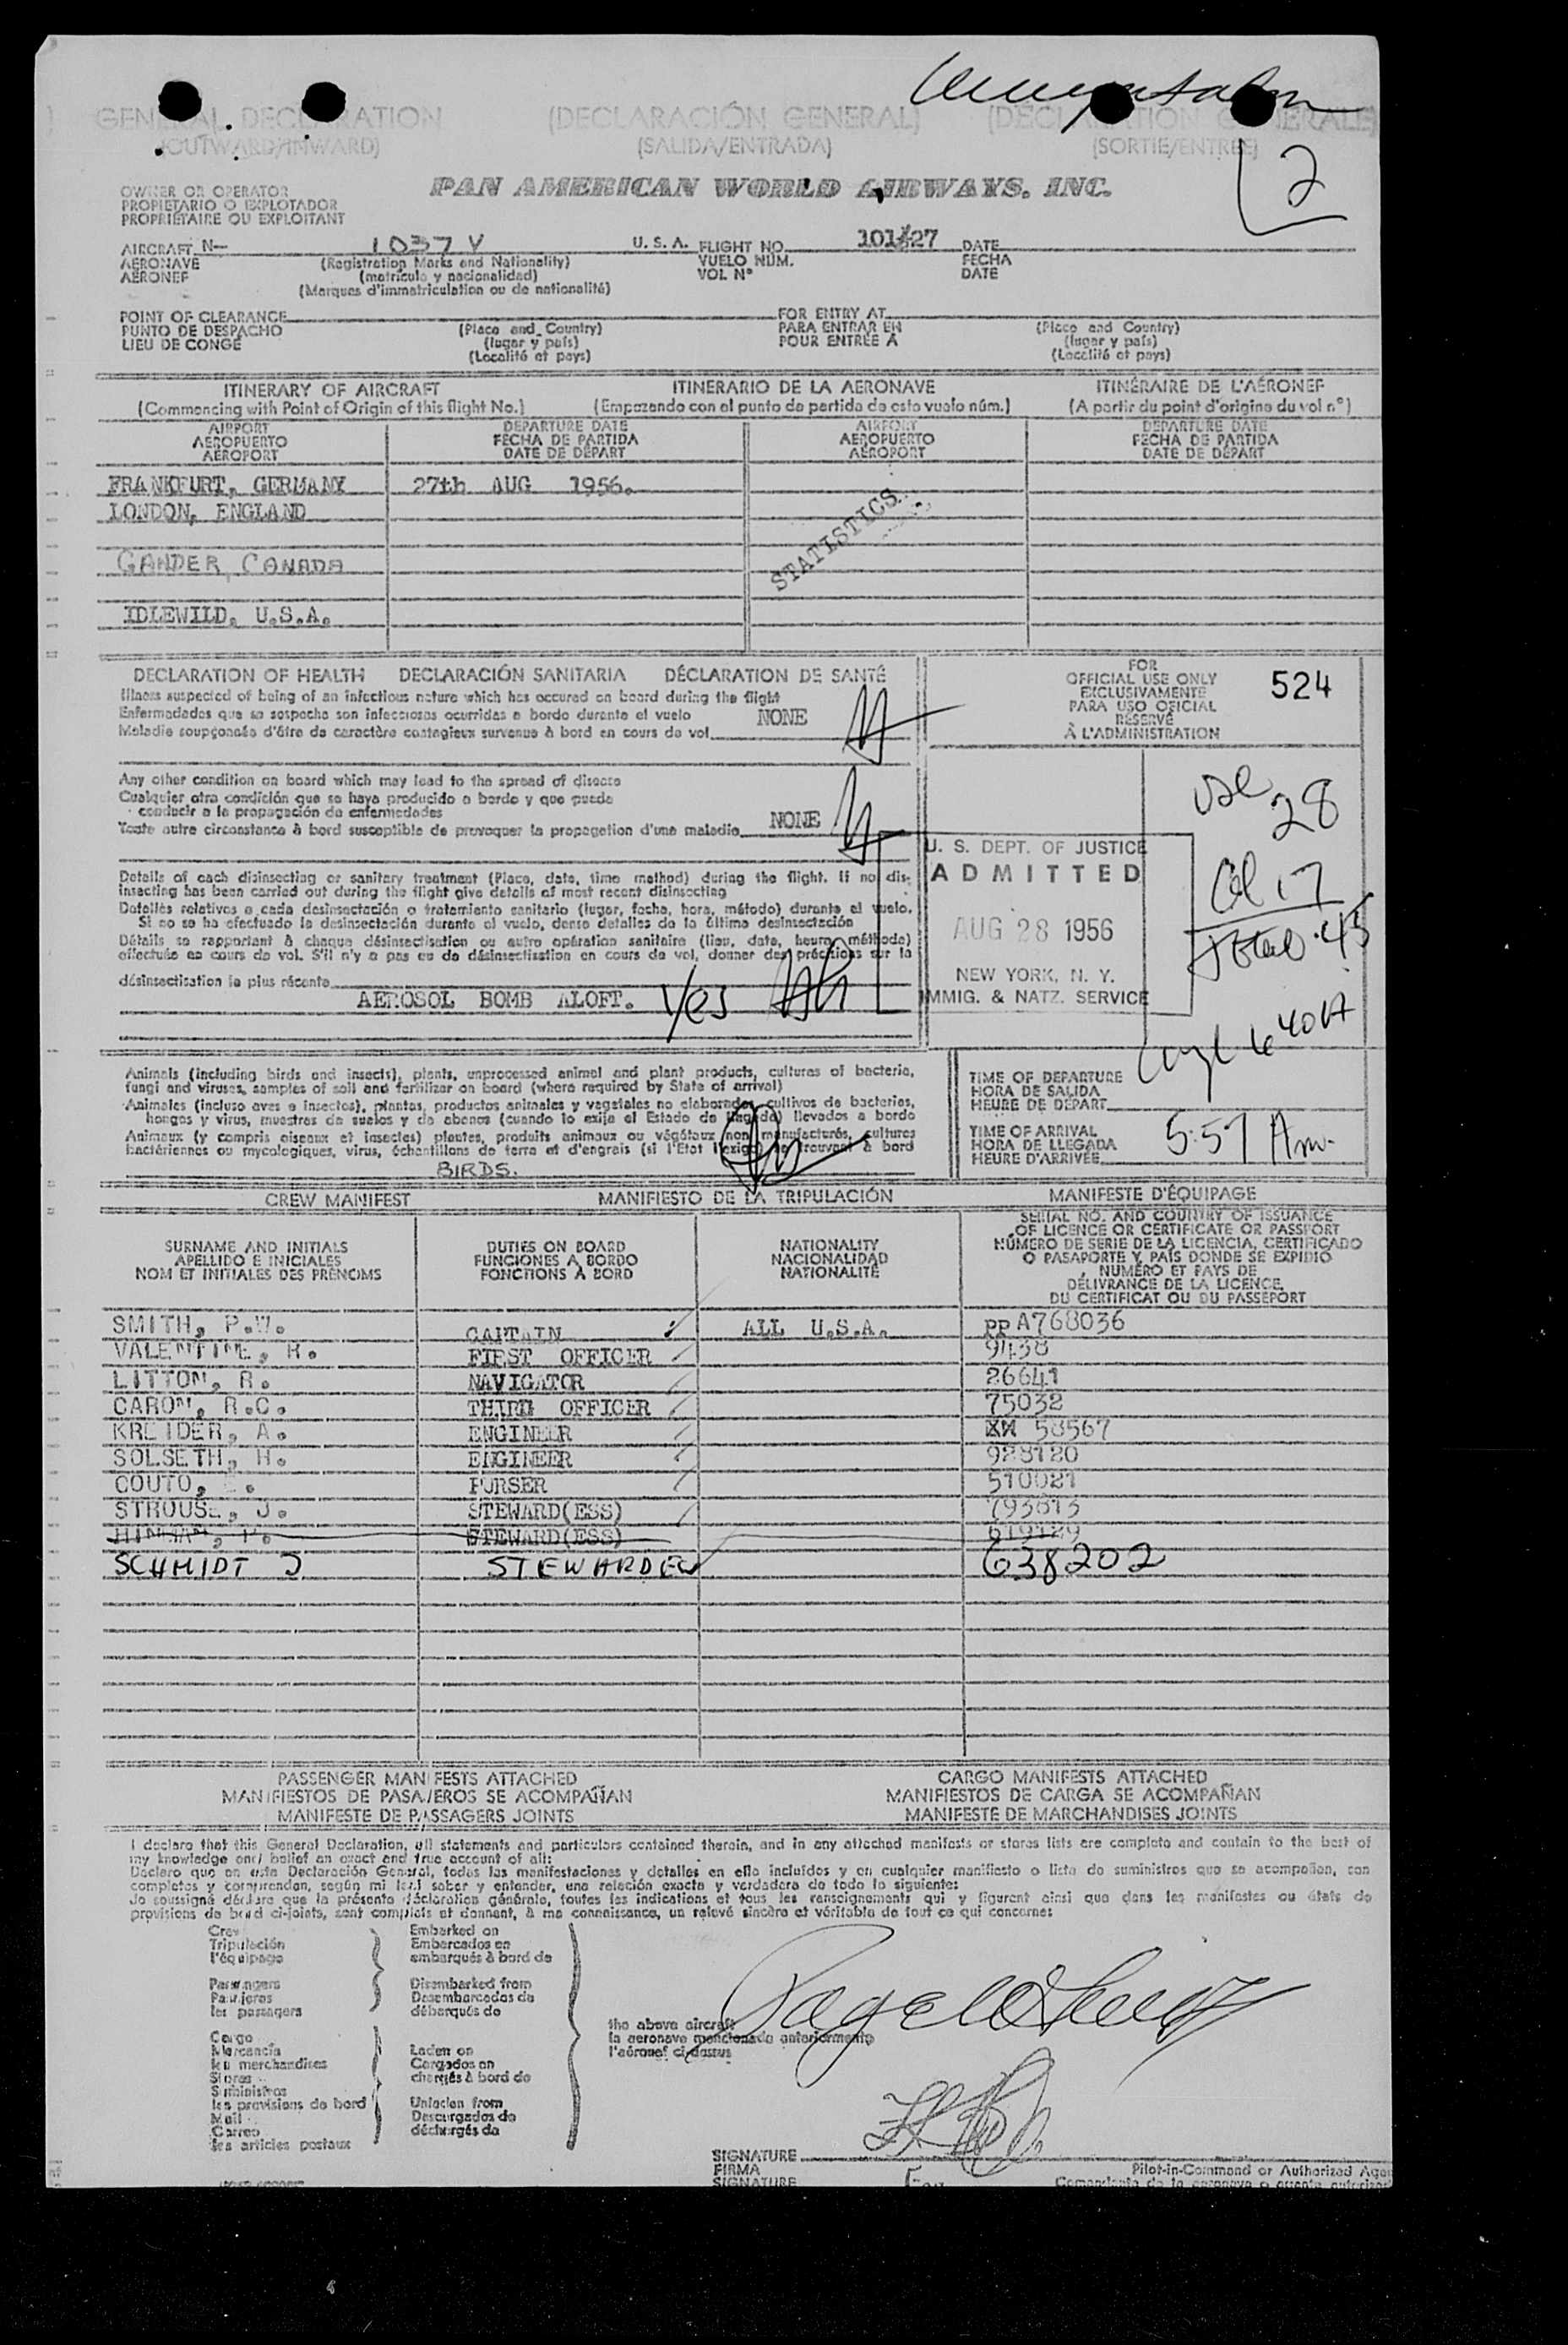 GENERAL DECLARATION (DECLARACIÓN GENERAL) (DÉCLARATION GÉNÉRALE)
(OUTWARD/INWARD) (SALIDA/ENTRADA) (SORTIE/ENTRÉE)
2
PAN AMERICAN WORLD AIRWAYS, INC.
OWNER OR OPERATOR
PROPIETARIO O EXPLOTADOR
PROPRIÉTAIRE OU EXPLOITANT
AIRCRAFT N— 1037 V U. S. A. FLIGHT NO. 101/27 DATE
AERONAVE (Registration Marks and Nationality) VUELO NÚM. FECHA
AÉRONEF (matrícula y nacionalidad) VOL Nº DATE
(Marques d'immatriculation ou de nationalité)
POINT OF CLEARANCE FOR ENTRY AT
PUNTO DE DESPACHO (Place and Country) PARA ENTRAR EN (Place and Country)
LIEU DE CONGÉ (lugar y país) POUR ENTRÉE A (lugar y país)
(Localité et pays) (Localité et pays)
ITINERARY OF AIRCRAFT ITINERARIO DE LA AERONAVE ITINÉRAIRE DE L'AÉRONEF
(Commencing with Point of Origin of this flight No.) (Empezando con el punto de partida de este vuelo núm.) (A partir du point d'origine du vol nº)
AIRPORT DEPARTURE DATE AIRPORT DEPARTURE DATE
AEROPUERTO FECHA DE PARTIDA AEROPUERTO FECHA DE PARTIDA
AÉROPORT DATE DE DÉPART AÉROPORT DATE DE DÉPART
FRANKFURT, GERMANY 27th AUG 1956.
LONDON, ENGLAND
STATISTICS
GANDER, CANADA
IDLEWILD, U.S.A.
DECLARATION OF HEALTH DECLARACIÓN SANITARIA DÉCLARATION DE SANTÉ
Illness suspected of being of an infectious nature which has occured on board during the flight
Enfermedades que se sospecha son infecciosas ocurridas a bordo durante el vuelo NONE
Maladie soupçonnée d'être de caractère contagieux survenue à bord en cours de vol
Any other condition on board which may lead to the spread of disease
Cualquier otra condición que se haya producido a bordo y que pueda
conducir a la propagación de enfermedades
Toute autre circonstance à bord susceptible de provoquer la propagation d'une maladie NONE
Details of each disinsecting or sanitary treatment (Place, date, time method) during the flight. If no dis-
insecting has been carried out during the flight give details of most recent disinsecting
Detalles relativos a cada desinsectación o tratamiento sanitario (lugar, fecha, hora, método) durante el vuelo.
Si no se ha efectuado la desinsectación durante el vuelo, dense detalles de la última desinsectación
Détails se rapportant à chaque désinsectisation ou autre opération sanitaire (lieu, date, heure, méthode)
effectuée en cours de vol. S'il n'y a pas eu de désinsectisation en cours de vol, donner des précisions sur la
désinsectisation la plus récente
AEROSOL BOMB ALOFT. Yes
FOR
OFFICIAL USE ONLY 524
EXCLUSIVAMENTE
PARA USO OFICIAL
RÉSERVÉ
À L'ADMINISTRATION
28
17
Total 45
U. S. DEPT. OF JUSTICE
ADMITTED
AUG 28 1956
NEW YORK, N. Y.
IMMIG. & NATZ. SERVICE
Animals (including birds and insects), plants, unprocessed animal and plant products, cultures of bacteria,
fungi and viruses, samples of soil and fertilizer on board (where required by State of arrival)
Animales (incluso aves e insectos), plantas, productos animales y vegetales no elaborados, cultivos de bacterias,
hongos y virus, muestras de suelos y de abonos (cuando lo exija el Estado de llegada) llevados a bordo
Animaux (y compris oiseaux et insectes) plantes, produits animaux ou végétaux non manufacturés, cultures
bactériennes ou mycologiques, virus, échantillons de terre et d'engrais (si l'Etat l'exige) se trouvant à bord
BIRDS.
TIME OF DEPARTURE
HORA DE SALIDA
HEURE DE DÉPART
TIME OF ARRIVAL
HORA DE LLEGADA 5:57 Am.
HEURE D'ARRIVÉE
CREW MANIFEST MANIFIESTO DE LA TRIPULACIÓN MANIFESTE D'ÉQUIPAGE
SURNAME AND INITIALS DUTIES ON BOARD NATIONALITY
APELLIDO E INICIALES FUNCIONES A BORDO NACIONALIDAD
NOM ET INITIALES DES PRÉNOMS FONCTIONS À BORD NATIONALITÉ
SERIAL NO. AND COUNTRY OF ISSUANCE
OF LICENCE OR CERTIFICATE OR PASSPORT
NÚMERO DE SERIE DE LA LICENCIA, CERTIFICADO
O PASAPORTE Y PAÍS DONDE SE EXPIDIÓ
NUMÉRO ET PAYS DE
DÉLIVRANCE DE LA LICENCE,
DU CERTIFICAT OU DU PASSEPORT
SMITH, P.W. CAPTAIN ALL U.S.A. PP A768036
VALENTINE, R. FIRST OFFICER 9438
LITTON, R. NAVIGATOR 26641
CARON, R.C. THIRD OFFICER 75032
KREIDER, A. ENGINEER 58567
SOLSETH, H. ENGINEER 928120
COUTO, PURSER 510021
STROUSE, J. STEWARD(ESS) 793613
STEWARD(ESS)
SCHMIDT J STEWARDESS 638202
PASSENGER MANIFESTS ATTACHED CARGO MANIFESTS ATTACHED
MANIFIESTOS DE PASAJEROS SE ACOMPAÑAN MANIFIESTOS DE CARGA SE ACOMPAÑAN
MANIFESTE DE PASSAGERS JOINTS MANIFESTE DE MARCHANDISES JOINTS
I declare that this General Declaration, all statements and particulars contained therein, and in any attached manifests or stores lists are complete and contain to the best of
my knowledge and belief an exact and true account of all:
Declaro que en esta Declaración General, todas las manifestaciones y detalles en ella incluídos y en cualquier manifiesto o lista de suministros que se acompañan, con
completos y comprenden, según mi leal saber y entender, una relación exacta y verdadera de todo lo siguiente:
Je soussigné déclare que la présente déclaration générale, toutes les indications et tous les renseignements qui y figurent ainsi que dans les manifestes ou états de
provisions de bord ci-joints, sont complets et donnent, à ma connaissance, un relevé sincère et véritable de tout ce qui concerne:
Crew Embarked on
Tripulación Embarcados en
l'équipage embarqués à bord de
Passengers Disembarked from
Pasajeros Desembarcados de
les passagers débarqués de
the above aircraft
la aeronave mencionada anteriormente
l'aéronef ci-dessus
Cargo
Mercancía Laden on
les merchandises Cargados en
Stores chargés à bord de
Suministros
les provisions de bord Unladen from
Mail Descargados de
Correo déchargés de
les articles postaux
SIGNATURE
FIRMA Pilot-in-Command or Authorized Agen
SIGNATURE For Comandante de la aeronave o agente autorizad